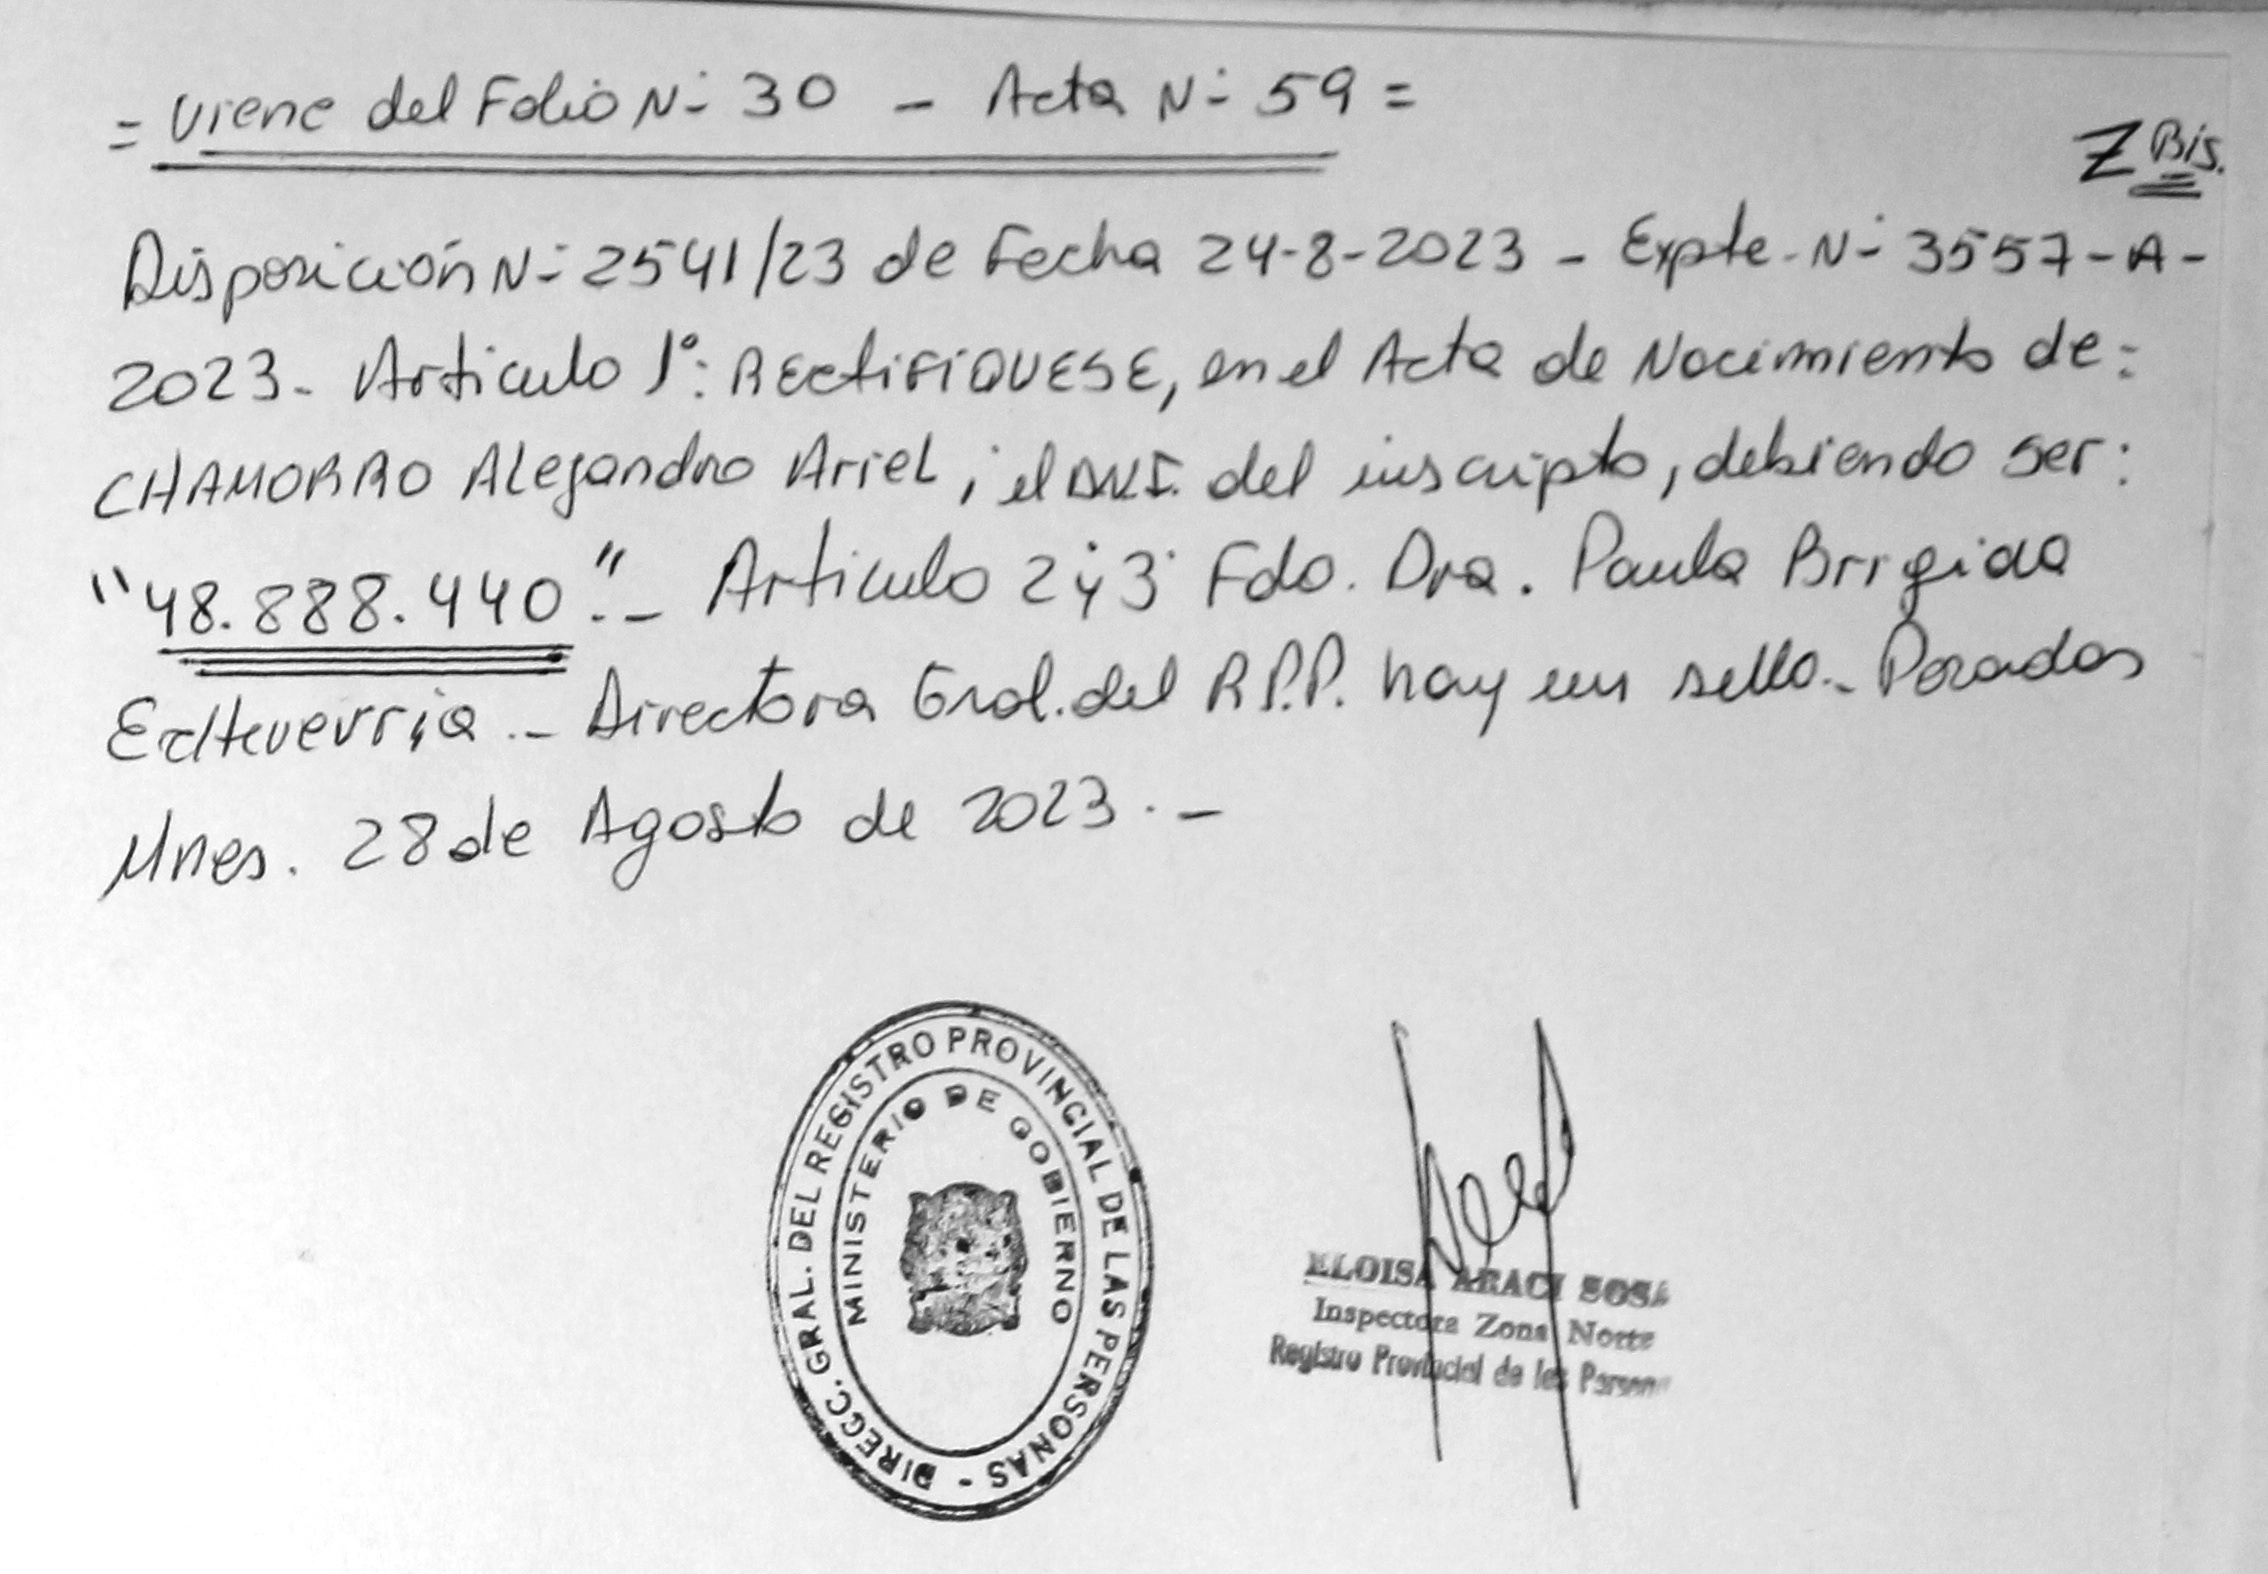 = Viene del Folio N° 30 - Acta N° 59 =
Z Bis.
Disposición N° 2541/23 de Fecha 24-8-2023 - Expte. N° 3557-A-
2023- Articulo 1°: RECTIFIQUESE, en el Acta de Nacimiento de:
CHAMORRO Alejandro Ariel, el DNI. del inscripto, debiendo ser:
"48.888.440".- Articulo 2 y 3 Fdo. Dra. Paula Brigida
Echeverria.- Directora Gral. del R.P.P. hay un sello.- Posadas
Mnes. 28 de Agosto de 2023.-
DIRECC. GRAL. DEL REGISTRO PROVINCIAL DE LAS PERSONAS -
MINISTERIO DE GOBIERNO
ELOISA ARACI SOSA
Inspectora Zona Norte
Registro Provincial de las Personas